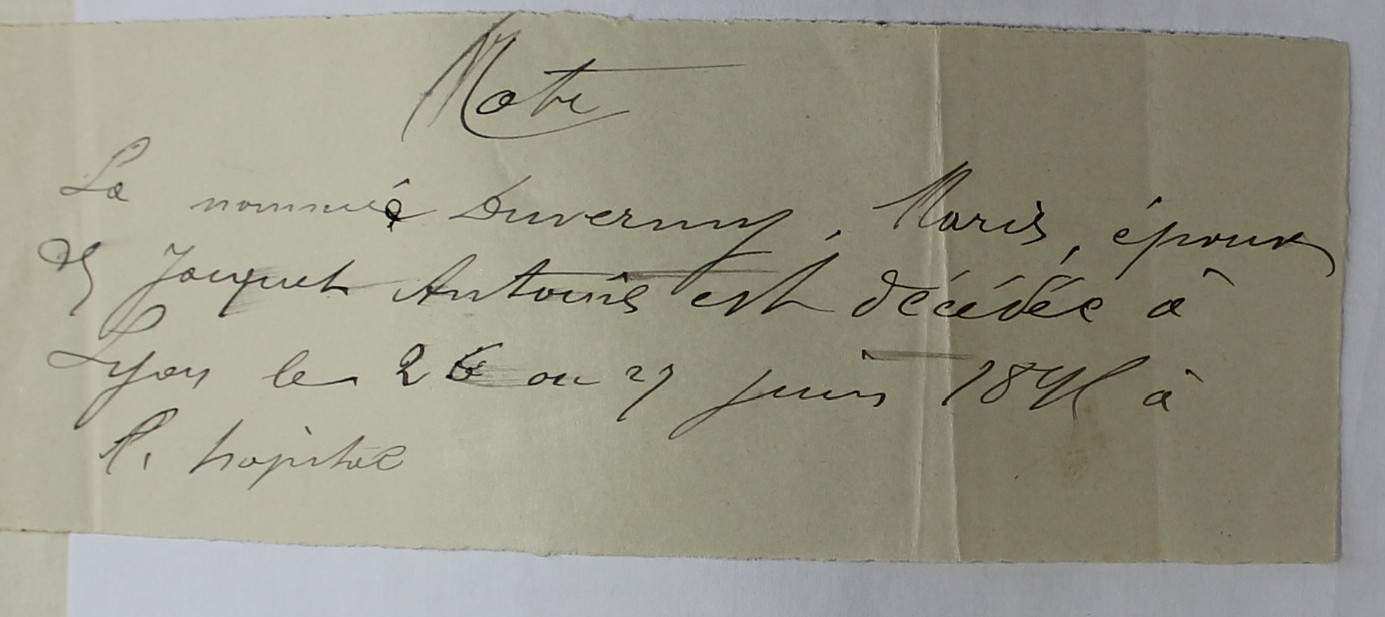 Note
La nommée Duverney, Marie, épouse
de Jacquet Antoine est décédée à
Lyon le 26 ou 27 juin à
l'hopital